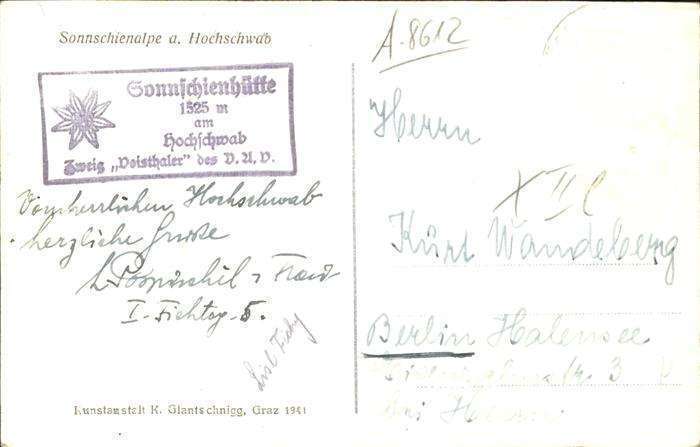 Sonnschienalpe a. Hochschwab
A-8612
Sonnschienhütte
1525 m
am
Hochschwab
Zweig „Voisthaler" des D.A.V.
Vom herrlichen Hochschwab
herzliche Grüsse
Pospischil
I. Fichteg. 5.
Herrn
XII
Kurt Wandeberg
Berlin Halensee
3
bei Herrn
Kunstanstalt K. Glantschnigg, Graz 1941